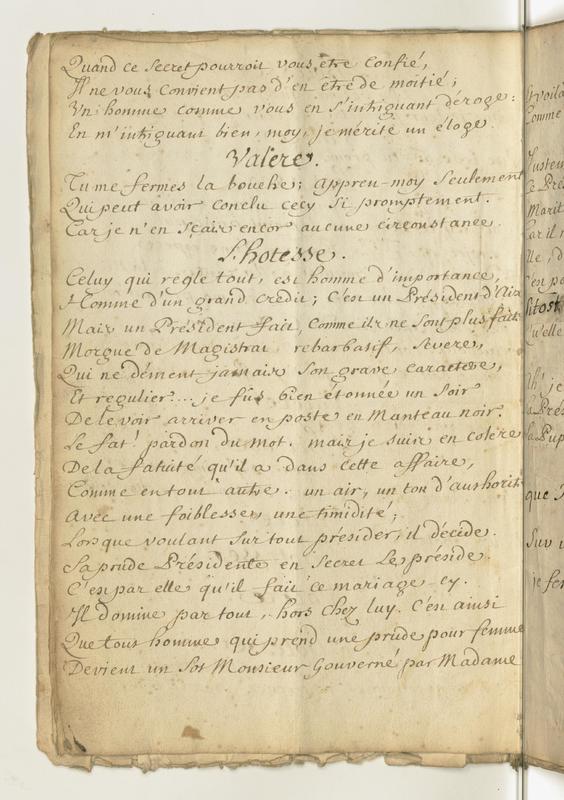 Quand ce Secret pourroit vous être Confié,
Il ne vous Convient pas d'en être de moitié ;
Un homme comme vous en s'intriguant déroge :
En m'intriguant bien, moy, je mérite un éloge
Valere.
Tu me fermes la bouche ; appren-moy Seulement
Qui peut avoir conclu cecy Si promptement.
Car je n'en Sçais encor aucune circonstance.
L'hotesse.
Celuy qui regle tout, est homme d'importance,
Homme d'un grand credit ; C'est un Président d'Aix
Mais un Président fait, Comme ils ne Sont plus faits
Morgue de Magistrat rebarbatif, Severe,
Qui ne dément jamais Son grave caractere,
Et regulier... je fus bien étonnée un Soir
De le voir arriver en poste en Manteau noir.
Le fat ! pardon du mot. mais je suis en colere
De la fatuité qu'il a dans cette affaire,
Comme en tout autre. un air, un ton d'authorité
Avec une foiblesse, une timidité ;
Lorsque voulant Sur tout présider, il décide.
Sa prude Présidente en Secret Le préside.
C'est par elle qu'il fait ce mariage-cy.
Il domine par tout, hors chez luy. C'est ainsi
Que tout homme qui prend une prude pour femme
Devient un Sot Monsieur Gouverné par Madame